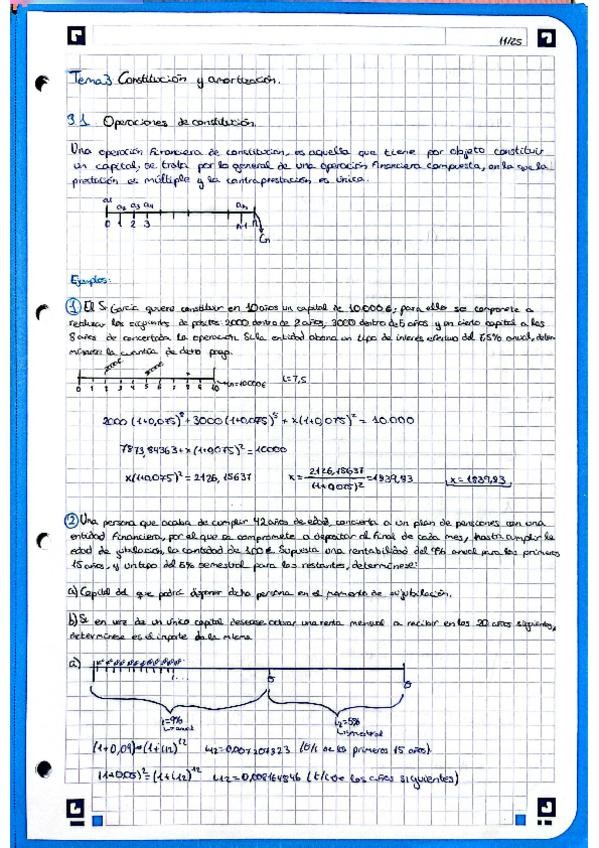 11/25
Tema 3 Constitución y amortización.
3.1 Operaciones de constitución.
Una operación financiera de constitucion, es aquella que tiene por objeto constituir
un capital, se trata por lo general de una operación financiera compuesta, en la que la
prestación es múltiple y la contraprestación es única.
a1 a2 a3 a4 an
0 1 2 3 n-1 n
Cn
Ejemplos:
1 El Sr García quiere constituir en 10 años un capital de 10.000 €, para ello se compromete a
realizar los siguientes depósitos: 2000 dentro de 2 años, 3000 dentro de 5 años y un cierto capital a los
8 años de concertada la operación. Si la entidad abona un tipo de interés efectivo del 7,5% anual, deter-
mínese la cuantía de dicho pago.
2000€ 3000€ x
0 1 2 3 4 5 6 7 8 9 10 Cn=10000€ i=7,5
2000(1+0,075)^8+3000(1+0,075)^5+x(1+0,075)^2=10.000
7873,84363+x(1+0,075)^2=10000
x(1+0,075)^2=2126,15637 x=2126,15637/(1+0,075)^2=1839,83 x=1839,83
2 Una persona que acaba de cumplir 42 años de edad, concierta a un plan de pensiones con una
entidad financiera, por el que se compromete a depositar al final de cada mes, hasta cumplir la
edad de jubilación, la cantidad de 100 €. Supuesta una rentabilidad del 9% anual para los primeros
15 años, y un tipo del 5% semestral para los restantes, determínese:
a) Capital del que podrá disponer dicha persona en el momento de su jubilación.
b) Si en vez de un único capital desease activar una renta mensual a recibir en los 20 años siguientes,
determinese es el importe de la misma
a)
i=9%
anual
i2=5%
semestral
(1+0,09)=(1+i12)^12 i12=0,007207323 (t/i de los primeros 15 años)
(1+0,05)^2=(1+i12)^12 i12=0,008164846 (t/i de los años siguientes)